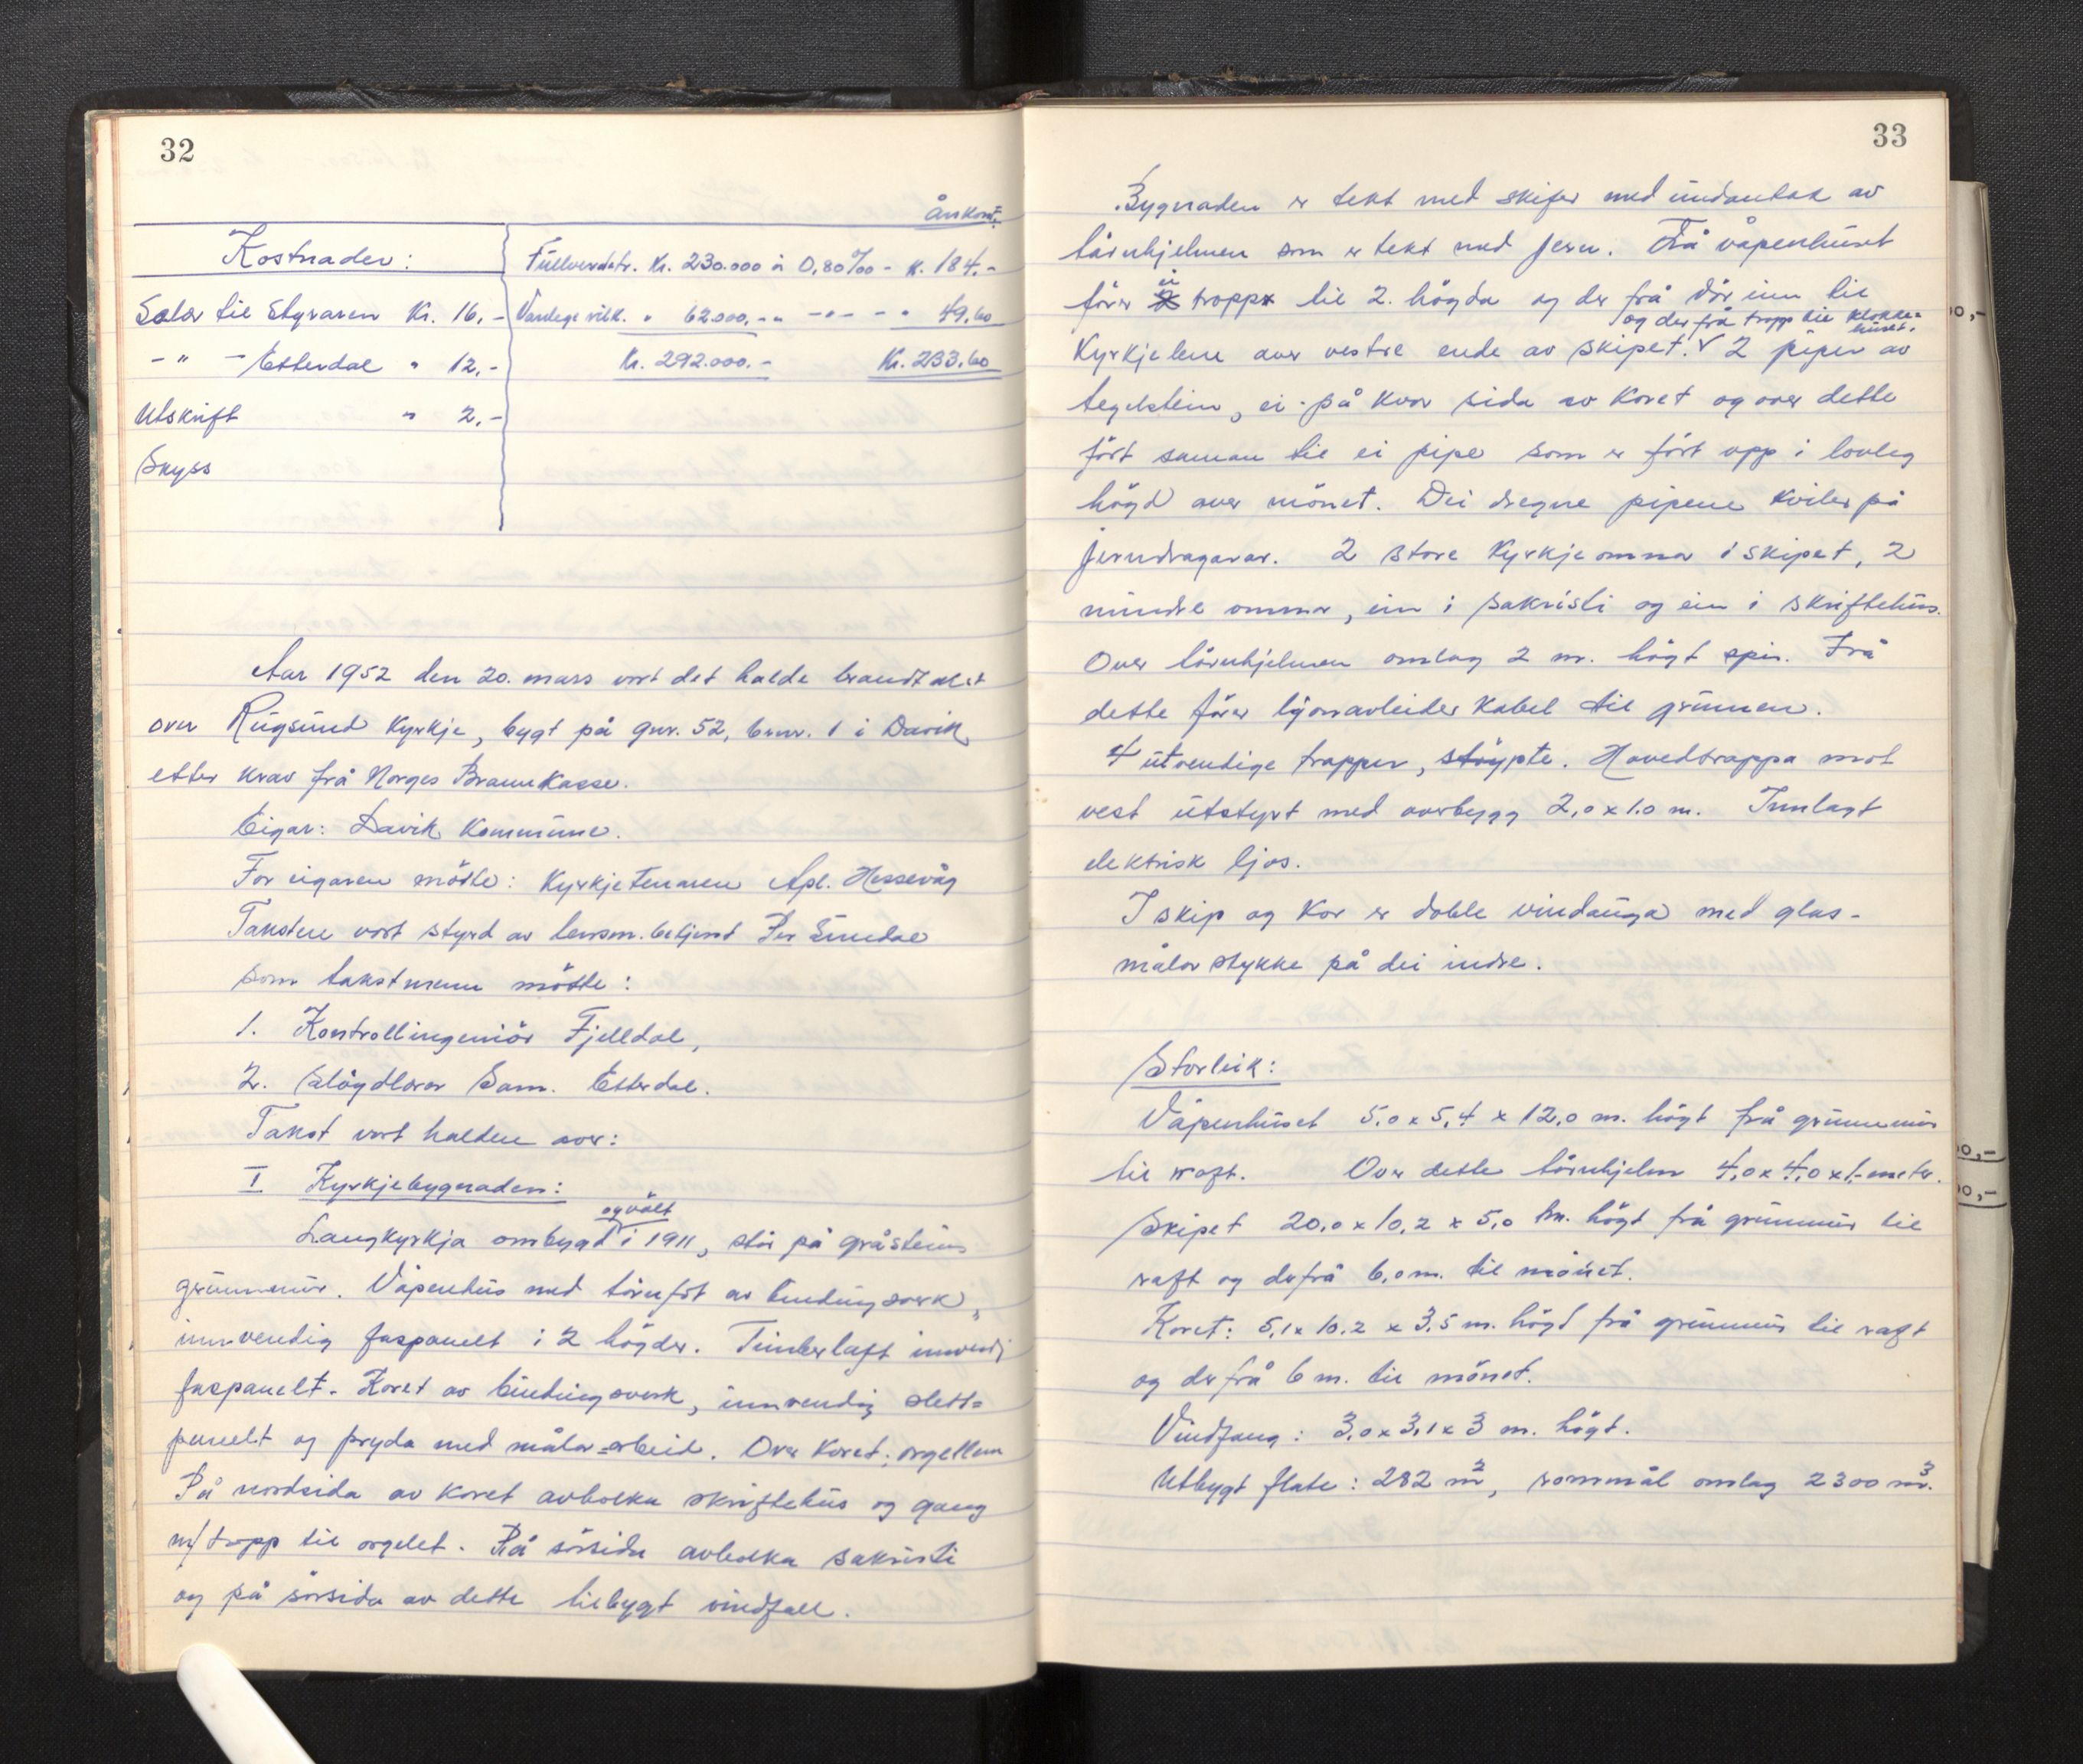 32
Årskont.
Kostnader:
Fullverdstr. Kr. 230.000 à 0,80‰ - K. 184.-
Salær til styraren Kr. 16,-
Vanlege vilk. " 62.000,- " -"- - " 49,60
- " - Etterdal " 12,-
Kr. 292.000.- Kr. 233,60
Utskrift " 2,-
Skyss
Aar 1952 den 20. mars vart det halde brandtakst
over Rugsund Kyrkje, bygt på gnr. 52, bnr. 1 i Davik
etter krav frå Norges Brannkasse.
Eigar: Davik Kommune.
For eigaren møtte: Kyrkjetenaren Apl. Hessevåg
Taksten vart styrd av lensm.betjent Per
som takstmenn møtte:
1. Kontrollingeniör Fjelldal,
2. Slöydlærar Sam. Etterdal.
Takst vart halden over:
I Kyrkjebygnaden:
og vølt
Langkyrkja ombygd i 1911, står på gråsteins
grunnmur. Våpenhus med tårnfot av bindingsverk,
innvendig faspanelt i 2 högder. Timberlaft innvendi
faspanelt. Koret av bindingsverk, innvendig slett=
panelt og pryda med målar=arbeid. Over Koret: orgellem
På nordsida av koret avbolka skriftehus og gang
m/ tropp til orgelet. På sörsida avbolka sakristi
og på sörsida av dette tilbygt vindfall.
33
Bygnaden er tekt med skifer med undantak av
tårnhjelmen som er tekt med jern. Frå våpenhuset
ei
förer 2 tropp til 2. högda og der frå dör inn til
og der frå tropp til klokke=
huset.
Kyrkjelem over vestre ende av skipet. V 2 piper av
tegelstein, ei på kvar sida av Koret og over dette
fört saman til ei pipe som er fört opp i lovleg
högd over mönet. Dei dregne pipene kviler på
jerndragarar. 2 store Kyrkjeomnar i skipet, 2
mindre omnar, ein i sakristi og ein i skriftehus.
Over tårnhjelmen omlag 2 m. högt spir. Frå
dette förer lynavleider Kabel til grunnen.
4 utvendige trapper, stöypte. Hovedtrappa mot
vest utstyrt med overbygg 2,0 x 1.0 m. Innlagt
elektrisk ljos.
I skip og Kor er doble vindauga med glas-
målar stykke på dei indre.
Storleik:
Våpenhuset 5,0 x 5,4 x 12,0 m. högt frå grunnmur
til raft. Over dette tårnhjelm 4,0 x 4,0 x 1.- meter.
Skipet 20,0 x 10,2 x 5,0 m. högt frå grunnmur til
raft og derfrå 6,0 m. til mönet.
Koret: 5,1 x 10,2 x 3,5 m. högd frå grunnmur til raft
og der frå 6 m. til mönet.
Vindfang: 3,0 x 3,1 x 3 m. högt.
Utbygt flate: 282 m², rommål omlag 2300 m³.
00,-
00,-
00,-